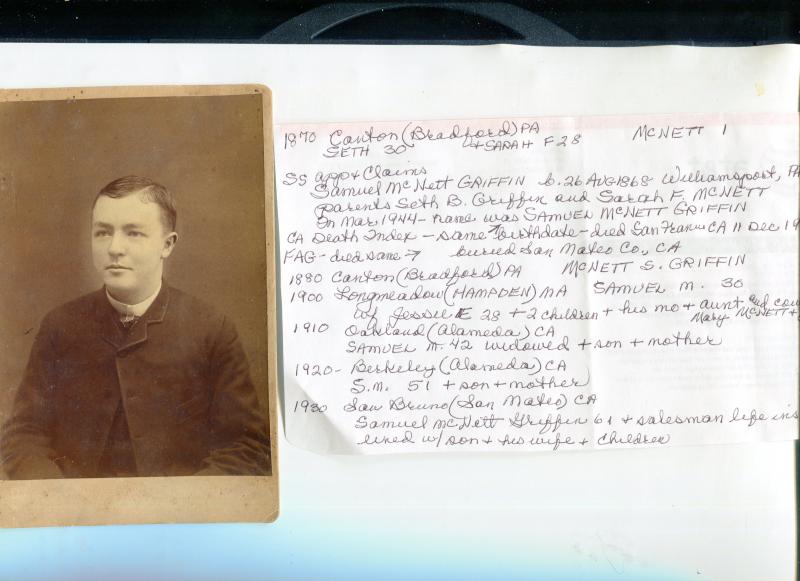 1870 Canton (Bradford) PA McNETT 1
SETH 30 + SARAH F 28
SS app & Claims
Samuel McNett GRIFFIN b. 26 AUG 1868 Williamsport, PA
parents Seth B. Griffin and Sarah F. McNETT
In Mar. 1944 - name was SAMUEL MCNETT GRIFFIN
CA Death Index - same birthdate - died San Fran CA 11 Dec 19
FAG - died same → buried San Mateo Co., CA
1880 Canton (Bradford) PA McNETT S. GRIFFIN
1900 Longmeadow (HAMPDEN) MA SAMUEL M. 30
w/ Jessie E 28 + 2 children + his mo + aunt and cou
Mary McNETT +
1910 Oakland (Alameda) CA
SAMUEL M. 42 widowed + son + mother
1920 - Berkeley (Alameda) CA
S.M. 51 + son + mother
1930 San Bruno (San Mateo) CA
Samuel McNett Griffin 61 + salesman life ins
lived w/ son + his wife + children